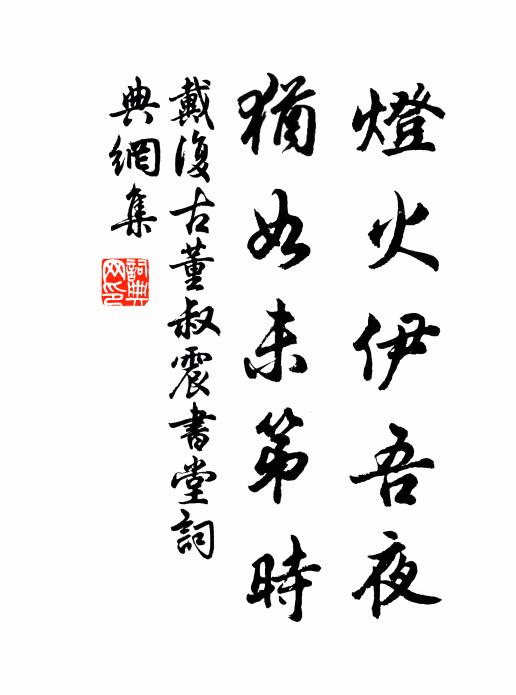 燈火伊吾夜
猶如未第時
戴復古董叔震書堂詞
典網集
詞典
网印